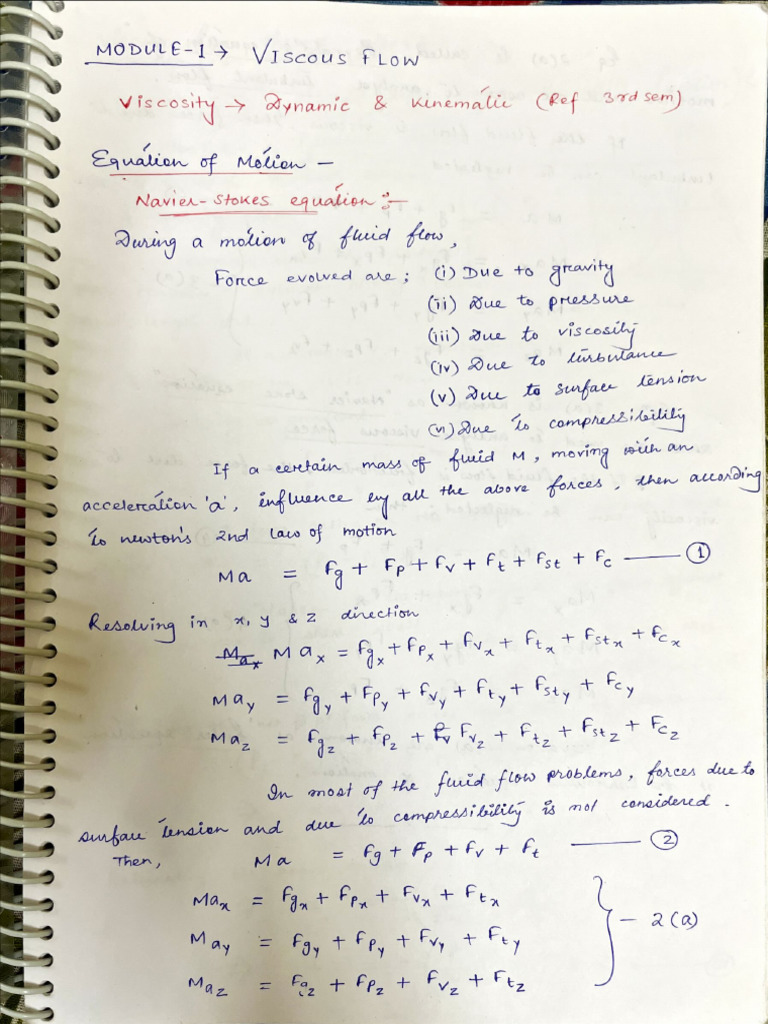 MODULE-1 → VISCOUS FLOW
Viscosity → Dynamic & Kinematic (Ref 3rd sem)
Equation of Motion –
Navier-Stokes equation :-
During a motion of fluid flow,
Force evolved are ; (i) Due to gravity
(ii) Due to pressure
(iii) Due to viscosity
(iv) Due to turbulance
(v) Due to surface tension
(vi) Due to compressibility
If a certain mass of fluid M, moving with an
acceleration 'a', influence by all the above forces, then according
to newton's 2nd law of motion
Ma = Fg + Fp + Fv + Ft + Fst + Fc —— ①
Resolving in x, y & z direction
Max Max = Fgx + Fpx + Fvx + Ftx + Fstx + Fcx
May = Fgy + Fpy + Fvy + Fty + Fsty + Fcy
Maz = Fgz + Fpz + Fv Fvz + Ftz + Fstz + Fcz
In most of the fluid flow problems, forces due to
surface tension and due to compressibility is not considered.
Then, Ma = Fg + Fp + Fv + Ft —— ②
Max = Fgx + Fpx + Fvx + Ftx
May = Fgy + Fpy + Fvy + Fty } – 2(a)
Maz = Fgz + Fpz + Fvz + Ftz